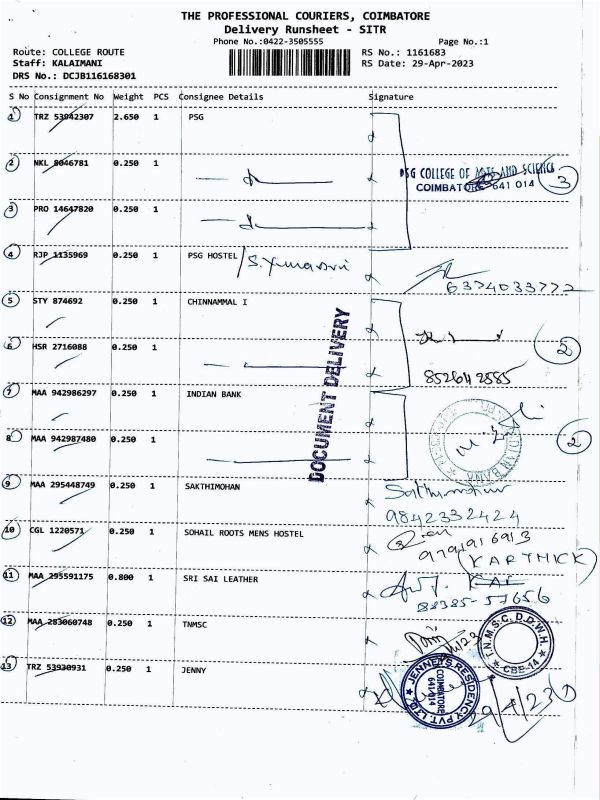 THE PROFESSIONAL COURIERS, COIMBATORE
Delivery Runsheet - SITR
Phone No.:0422-3505555 Page No.:1
Route: COLLEGE ROUTE RS No.: 1161683
Staff: KALAIMANI RS Date: 29-Apr-2023
DRS No.: DCJB116168301
S No Consignment No Weight PCS Consignee Details Signature
1 TRZ 53942307 2.650 1 PSG
2 NKL 8046781 0.250 1
PSG COLLEGE OF ARTS AND SCIENCE
COIMBATORE 641 014 3
3 PRO 14647820 0.250 1
4 RJP 1135969 0.250 1 PSG HOSTEL
6374033772
5 STY 874692 0.250 1 CHINNAMMAL I
6 HSR 2716088 0.250 1 2
7 MAA 942986297 0.250 1 INDIAN BANK
DOCUMENT DELIVERY
8 MAA 942987480 0.250 1 2
9 MAA 295448749 0.250 1 SAKTHIMOHAN Sakthimohan
9842332424
10 CGL 1220571 0.250 1 SOHAIL ROOTS MENS HOSTEL
9791916913
(KARTHICK)
11 MAA 295591175 0.800 1 SRI SAI LEATHER
88385-57656
12 MAA 283060748 0.250 1 TNMSC
T.N.M.S.C. D.D.W.H
CBE-14
13 TRZ 53930931 0.250 1 JENNY
JENNEYS RESIDENCY PVT. LTD.
COIMBATORE
641 014
29/4/23